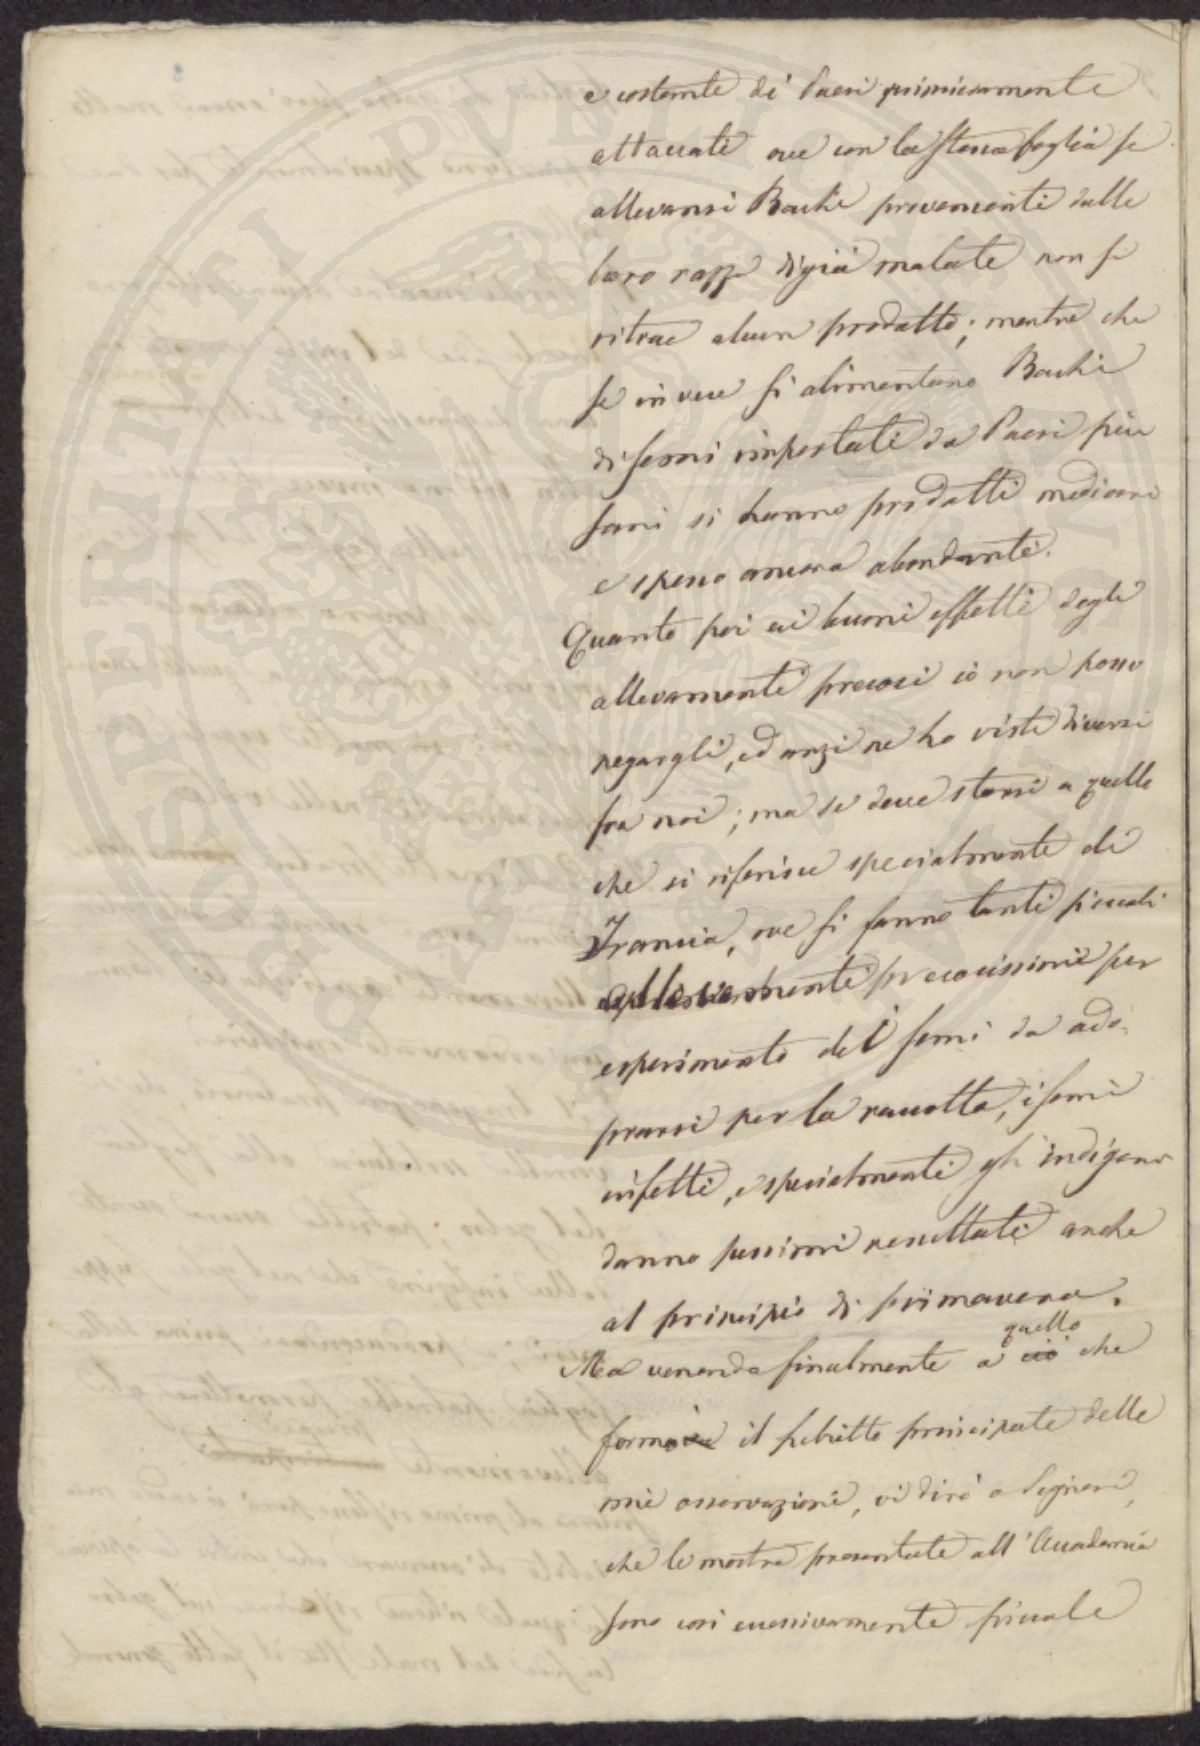 e costante di Paesi primieramente
attaccati ove con la stessa foglia se
allevansi Bachi provenienti dalle
loro razze digià malate non si
ritrae alcun prodotto; mentre che
se in vece si alimentano Bachi
di semi importati da Paesi più
sani si hanno prodotti mediocri
e spesso ancora abondanti.
Quanto poi ai buoni effetti degli
allevamenti precoci io non posso
negargli, ed anzi ne ho visti diversi
fra noi; ma se deve starsi a quello
che si riferisce specialmente di
Francia, ove si fanno tanti piccoli
allevamenti precocissimi per
esperimento dei semi da ado-
prarsi per la raccolta, i semi
infetti, e specialmente gli indigeni
danno pessimi resultati anche
al principio di primavera.
quello
Ma venendo finalmente a ciò che
forma il subietto principale delle
mie osservazioni, vi dirò o Signori,
che le mostre presentate all'Accademia
sono così eccessivamente piccole
PROSPERITATI PVBLICAE